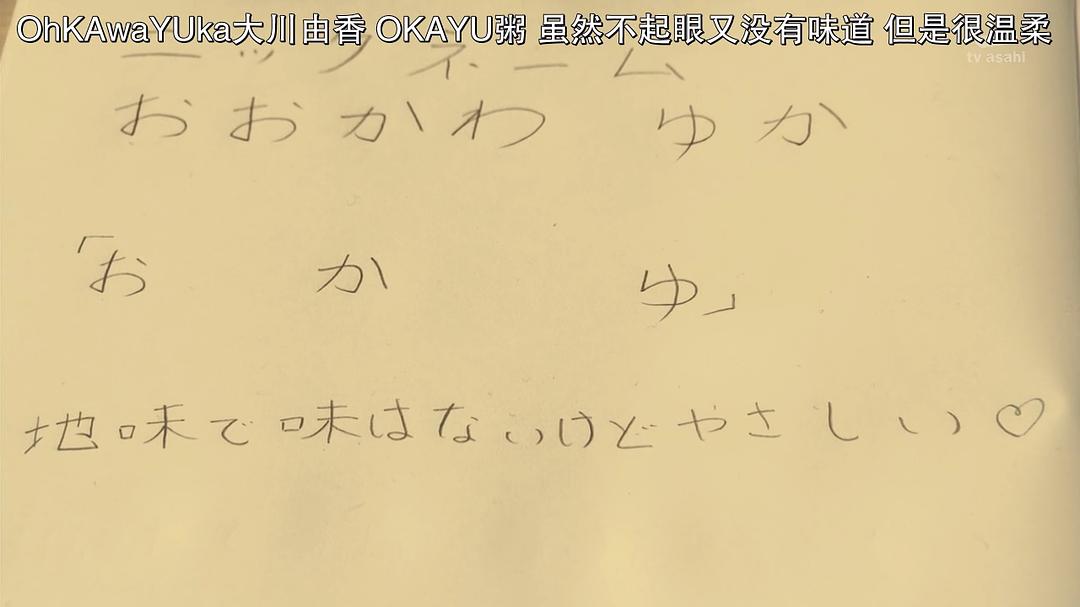 OhKAwaYUka大川由香 OKAYU粥 虽然不起眼又没有味道 但是很温柔
tv asahi
ニックネーム
おおかわ ゆか
「お か ゆ」
地味で味はないけどやさしい♡